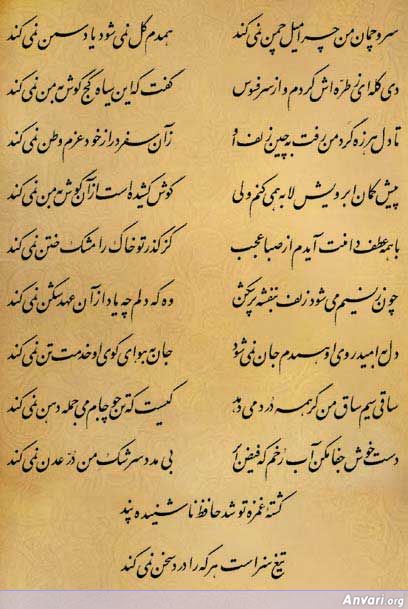 سرو چمان من چرا میل چمن نمی‌کند همدم گل نمی‌شود یاد سمن نمی‌کند
دی گله‌ای ز طره‌اش کردم و از سر فسوس گفت که این سیاه کج گوش به من نمی‌کند
تا دل هرزه گرد من رفت به چین زلف او زآن سفر دراز خود عزم وطن نمی‌کند
پیش کمان ابرویش لابه همی‌کنم ولی گوش کشیده است از آن گوش به من نمی‌کند
با همه عطف دامنت آیدم از صبا عجب کز گذر تو خاک را مشک ختن نمی‌کند
چون ز نسیم می‌شود زلف بنفشه پرشکن وه که دلم چه یاد از آن عهدشکن نمی‌کند
دل به امید روی او همدم جان نمی‌شود جان به هوای کوی او خدمت تن نمی‌کند
ساقی سیم ساق من گر همه درد می‌دهد کیست که تن چو جام می جمله دهن نمی‌کند
دست خوش جفا مکن آب رخم که فیض ابر بی مدد سرشک من در عدن نمی‌کند
کشته غمزه تو شد حافظ ناشنیده پند
تیغ سزاست هر که را درد سخن نمی‌کند
Anvari.org